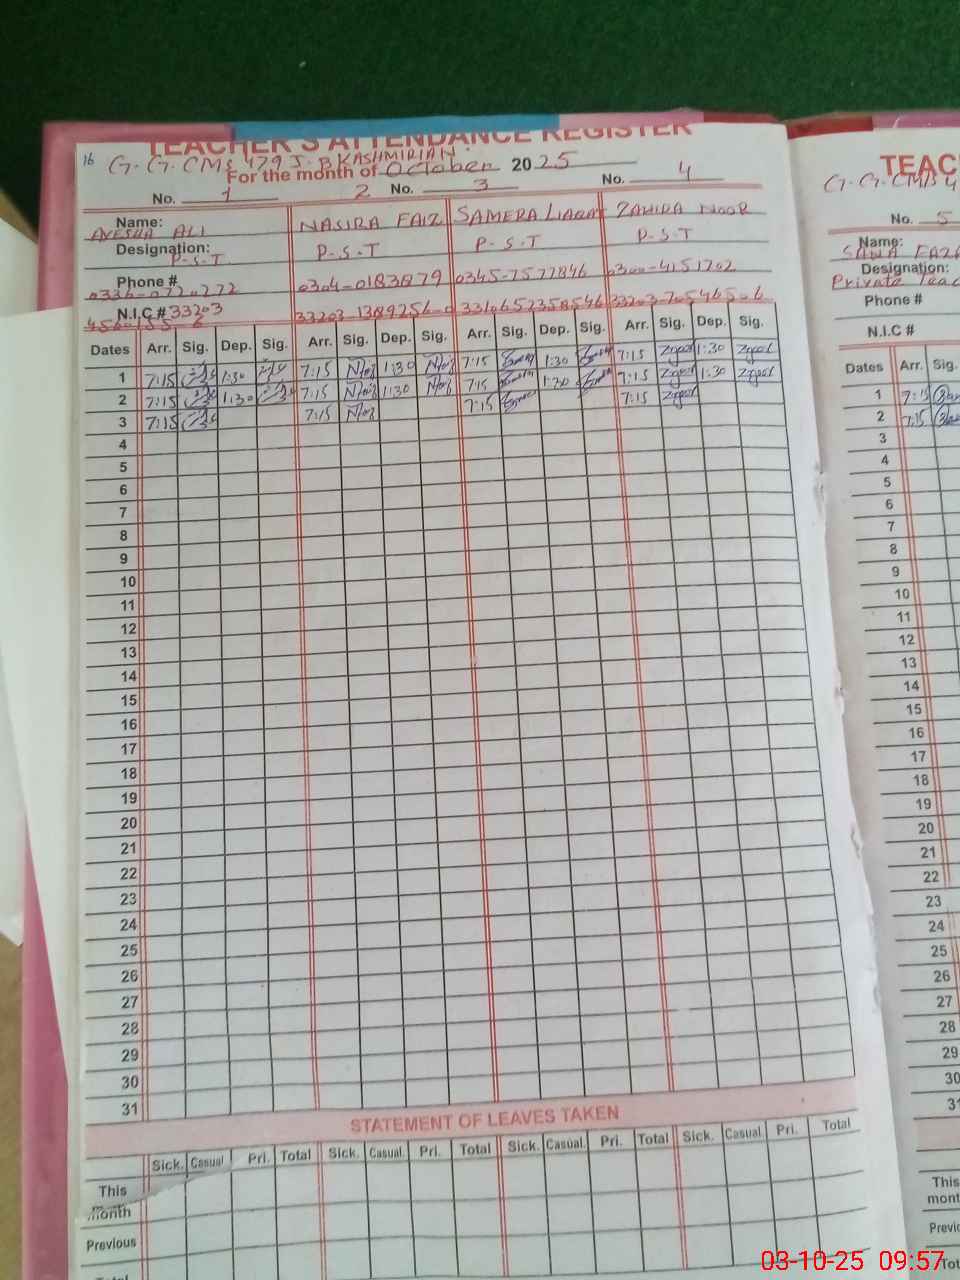 16
TEACHER'S ATTENDANCE REGISTER
G.G.CMS 479 J.B KASHMIRIAN.
For the month of October 2025
No. 1 2 No. 3 No. 4
Name: AYESHA ALI NASIRA FAIZ SAMERA LIAQAT ZAHIRA NOOR
Designation: P-S-T P-S-T P-S-T P-S-T
Phone # 0336-0720272 0304-0183879 0345-7577846 0300-4151702
N.I.C # 33203
Dates Arr. Sig. Dep. Sig. Arr. Sig. Dep. Sig. Arr. Sig. Dep. Sig. Arr. Sig. Dep. Sig.
1 7:15 1:30 7:15 1:30 7:15 1:30 7:15 1:30
2 7:15 1:30 7:15 1:30 7:15 1:30 7:15 1:30
3 7:15 7:15 7:15 7:15
4
5
6
7
8
9
10
11
12
13
14
15
16
17
18
19
20
21
22
23
24
25
26
27
28
29
30
31
STATEMENT OF LEAVES TAKEN
Sick. Casual Pri. Total Sick. Casual. Pri. Total Sick. Casual. Pri. Total Sick. Casual Pri. Total
This
month
Previous
TEAC
G.G.CMS 4
No. 5
Name:
Designation:
Private Teac
Phone #
N.I.C #
Dates Arr. Sig.
1 7:15
2 7:15
3
4
5
6
7
8
9
10
11
12
13
14
15
16
17
18
19
20
21
22
23
24
25
26
27
28
29
30
31
This
mont
Previo
03-10-25 09:57